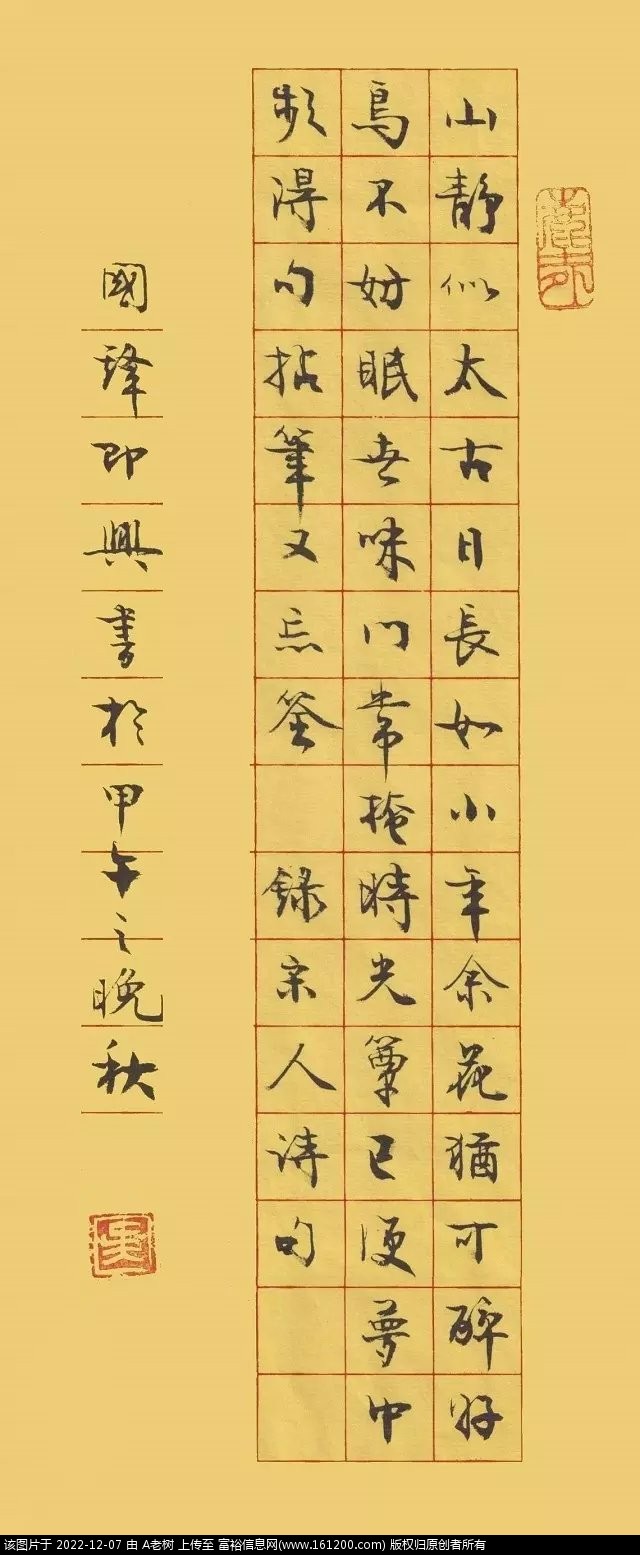 山靜似太古日長如小年余花猶可醉好
鳥不妨眠世味門常掩時光簟已便夢中
頻得句拈筆又忘筌 錄宋人詩句
國 即興書於甲午之晚秋
该图片于 2022-12-07 由 A老树 上传至 富裕信息网(www.161200.com) 版权归原创者所有